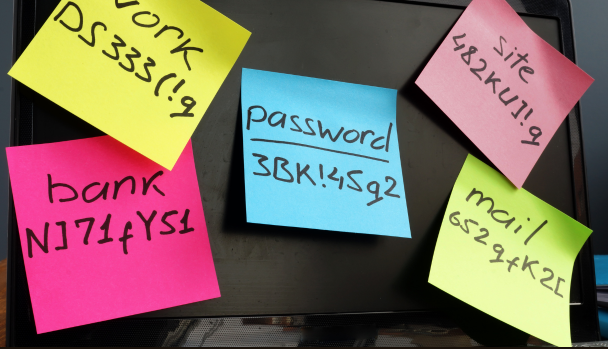 work
DS333(!g
bank
N]71fY51
password
3BK!45g2
site
482KU]!g
mail
652gfK2[